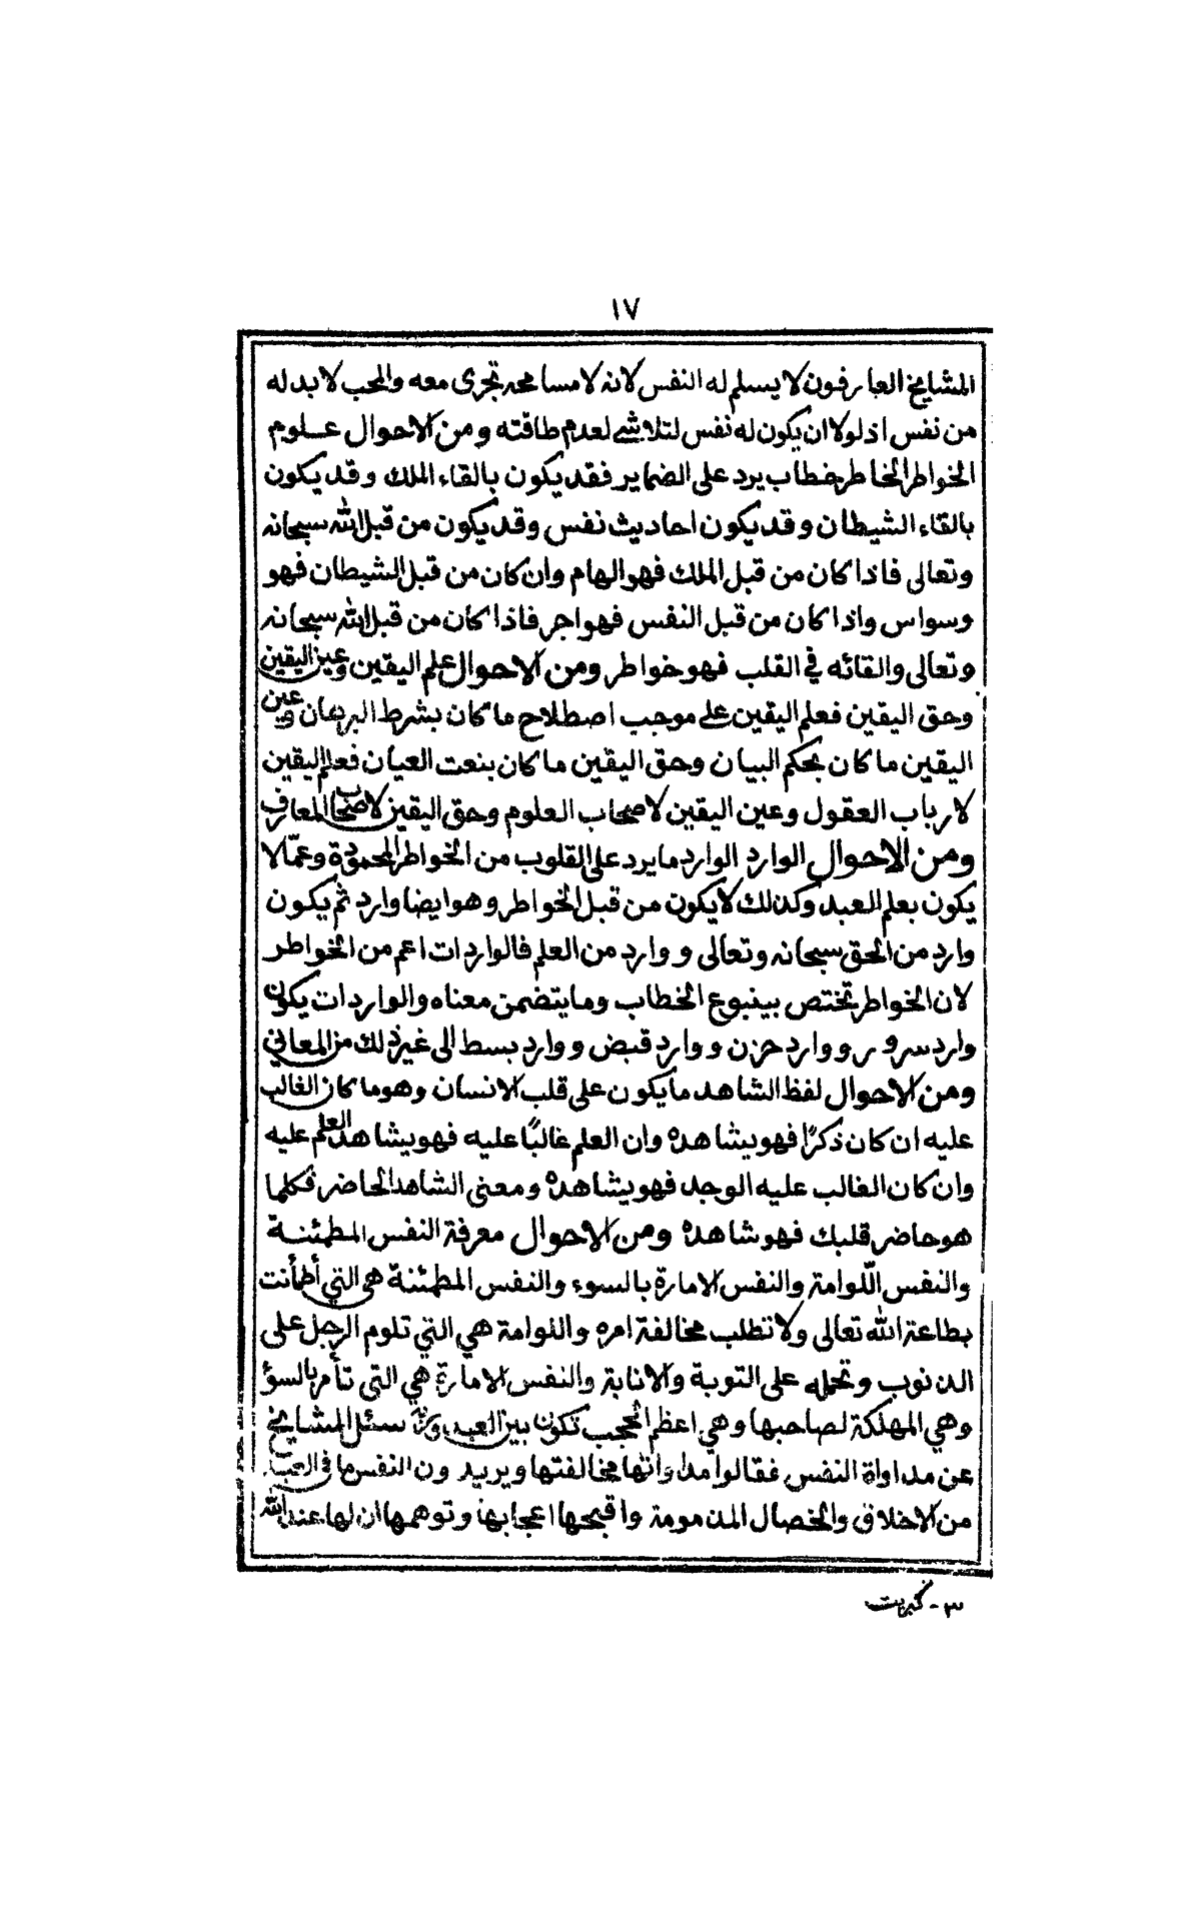 ١٧
المشايخ العارفون لا يسلم له النفس لانه لا مسامحه تجرى معه والمحب لا بد له
من نفس اذ لولا ان يكون له نفس لتلاشى لعدم طاقته ومن الاحوال علوم
الخواطر الخاطر خطاب يرد على الضماير فقد يكون بالقاء الملك وقد يكون
بالقاء الشيطان وقد يكون احاديث نفس وقد يكون من قبل الله سبحانه
وتعالى فاذا كان من قبل الملك فهو الهام وان كان من قبل الشيطان فهو
وسواس واذا كان من قبل النفس فهو اجر فاذا كان من قبل الله سبحانه
وتعالى والقائه في القلب فهو خواطر ومن الاحوال علم اليقين وعين اليقين
وحق اليقين فعلم اليقين على موجب اصطلاح ما كان بشرط البرهان وعين
اليقين ما كان بحكم البيان وحق اليقين ما كان بنعت العيان فعلم اليقين
لارباب العقول وعين اليقين لاصحاب العلوم وحق اليقين لاصحاب المعارف
ومن الاحوال الوارد الوارد ما يرد على القلوب من الخواطر المحمودة وعمّا لا
يكون بعلم العبد وكذلك لا يكون من قبل الخواطر وهو ايضا وارد ثم يكون
وارد من الحق سبحانه وتعالى و وارد من العلم فالواردات اعم من الخواطر
لان الخواطر تختص بينبوع الخطاب وما يتضمن معناه والواردات يكون
وارد سرور و وارد حزن و وارد قبض و وارد بسط الى غير ذلك من المعاني
ومن الاحوال لفظ الشاهد ما يكون على قلب الانسان وهو ما كان الغالب
عليه ان كان ذكرًا فهو يشاهده وان العلم غالبًا عليه فهو يشاهد العلم عليه
وان كان الغالب عليه الوجد فهو يشاهده ومعنى الشاهد الحاضر فكلما
هو حاضر قلبك فهو شاهده ومن الاحوال معرفة النفس المطمئنة
والنفس اللّوامة والنفس الامارة بالسوء والنفس المطمئنة هى التي أطمأنت
بطاعة الله تعالى ولا تطلب مخالفة امره واللوامة هي التي تلوم الرجل على
الذنوب وتحمله على التوبة والانابة والنفس الامارة هي التى تأمر بالسؤ
وهي المهلكة لصاحبها وهي اعظم الحجب تكون بين العبد سئل المشايخ
عن مداواة النفس فقالوا مداواتها مخالفتها ويريدون النفس ما في العبد
من الاخلاق والخصال المذمومة واقبحها اعجابها وتوهمها ان لها عند الله
٣ - كبريت